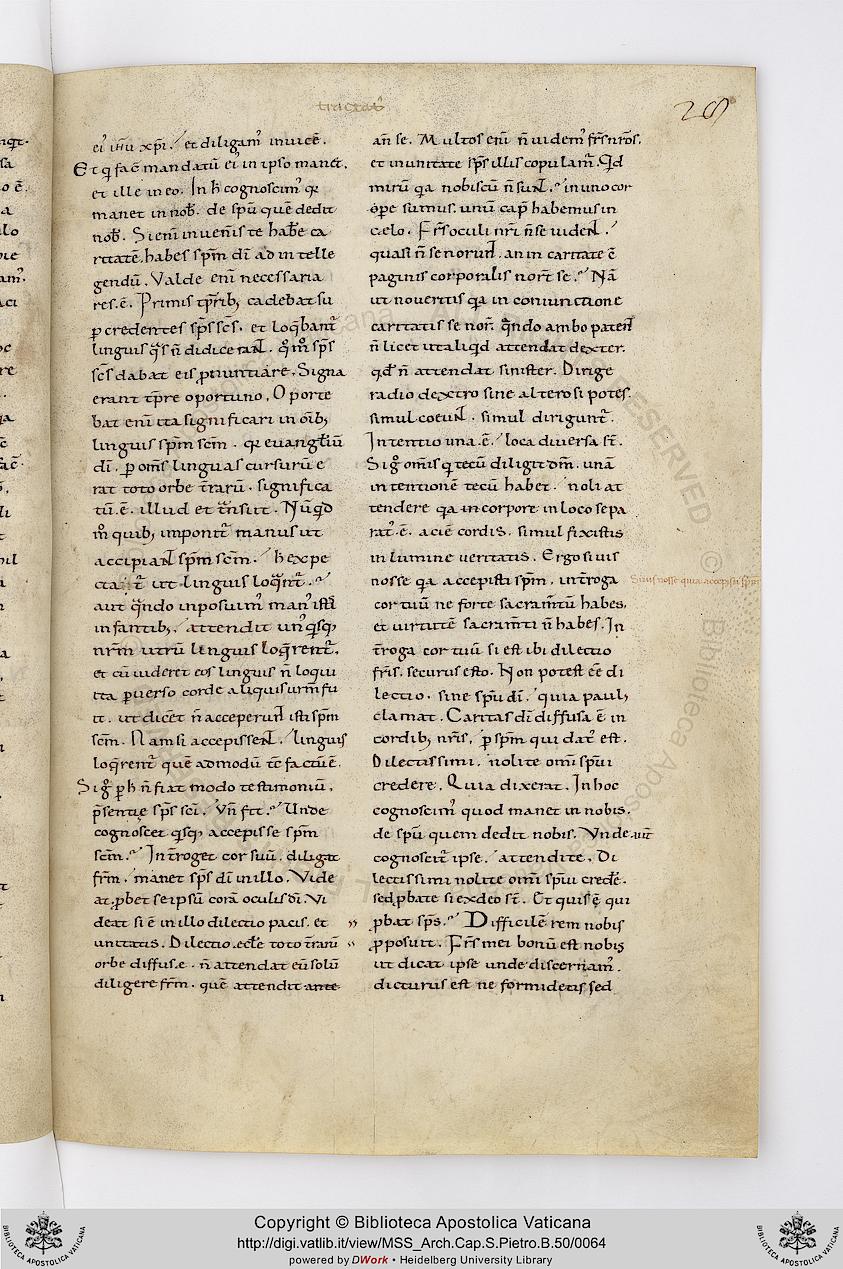 tractatꝰ
28
eiꝰ ihu xpi. et diligamꝰ inuicē.
Et q facͭ mandatū eiꝰ in ipso manet.
et ille in eo. In h̄ cognoscimꝰ qꝛ
manet in nob̄. de spū quē dedit
nob̄. Si eni inuenis te hab̄e ca
ritatē. habes spm dī ad in telle
gendū. Valde eni necessaria
res .ē. Primis tp̄rib; cadebat su
ꝑ credentes sps scs. et loq̄bantr̄
linguis q̄s n̄ didicerant. qm̊ sps
scs dabat eis ꝓnuntiare. Signa
erant tp̄re oportuno. Oporte
bat eni ita significari in oīb;
linguis spm scm. qꝛ euangłiū
dī. ꝑ oms linguas cursurū e
rat toto orbe t̄rarū. significa
tū .ē. illud et t̄nsiit. Nūqd
m̊ quib; imponitr̄ manus ut
accipiant spm scm. h̄ expe
ctatr̄ ut linguis loq̄ntr̄.
aut q̄ndo inposuimꝰ manꝰ isti
infantib; attendit unꝰqsq;
nrm utrū linguis loq̄rentr̄.
et cū uideret eos linguis n̄ loqui
ita ꝑuerso corde aliquis urm fu
it. ut dicet n̄ acceperunt isti spm
scm. Nam si accepissent. linguis
loq̄rentr̄ quē admodū tc̄ factū .ē.
Sigͦ ꝑ h̄ n̄ fiat modo testimoniū.
p̄sentie sps sci. Vn̄ fit. Unde
cognoscet qsq; accepisse spm
scm. Int̄roget cor suū. diligit
frm. manet sps dī in illo. Vide
at. ꝓbet se ipsū corā oculis dī. Vi
deat si ē in illo dilectio pacis. et
unitatis. Dilectio .ecłe toto t̄rarū
orbe diffuse. n̄ attendat eū solū
diligere frm. quē attendit ante
an̄ se. Multos eni n̄ uidemꝰ frs nrōs.
et in unitate sps illis copulamꝰ. Qd
mirū qa nobiscū n̄ sunt. in uno cor
pore sumus. unū capꝰ habemus in
celo. Frs oculi nri n̄ se uident.
quasi n̄ se norunt. an in caritate ē
paginis corporalis nor̄t se. Nā
ut noueritis qa in coniunctione
caritatis se nor̄. q̄ndo ambo patent
n̄ licet ut aliqd attendat dexter.
qd n̄ attendat sinister. Dirige
radiū dextro sine altero si potes.
simul coeunt. simul diriguntr̄.
Intentio una .ē. loca diuersa st̄.
Sigͦ omis q tecū diligit dm. unā
intentionē tecū habet. noli at
tendere qa in corpore in loco sepa
ratꝰ .ē. aciē cordis. simul fixistis
in lumine ueritatis. Ergo si uis
nosse qa accepisti spm. int̄roga
cor tuū ne forte sacramt̄ū habes.
et uirtutē sacramti n̄ habes. In
t̄roga cor tuū si est ibi dilectio
fris. securus esto. Non potest eē di
lectio. sine spū dī. quia paulꝰ
clamat. Caritas dī diffusa ē in
cordib; nris. ꝑ spm qui datꝰ est.
Dilectissimi. nolite omi spui
credere. Quia dixerat. In hoc
cognoscimꝰ quod manet in nobis.
de spū quem dedit nobis. Vnde aut̄
cognoscitr̄ ipse. attendite. Di
lectissimi nolite omi spui credē.
sed ꝓbate si ex deo st̄. Et quis ē qui
ꝓbat sps. Difficilē rem nobis
ꝓposuit. Frs mei bonū est nobis
ut dicat ipse unde discernamꝰ.
dicturus est ne formidetis sed
Si uis nosse quia accepisti spm
Copyright © Biblioteca Apostolica Vaticana
http://digi.vatlib.it/view/MSS_Arch.Cap.S.Pietro.B.50/0064
powered by DWork • Heidelberg University Library
BIBLIOTECA APOSTOLICA VATICANA
BIBLIOTECA APOSTOLICA VATICANA